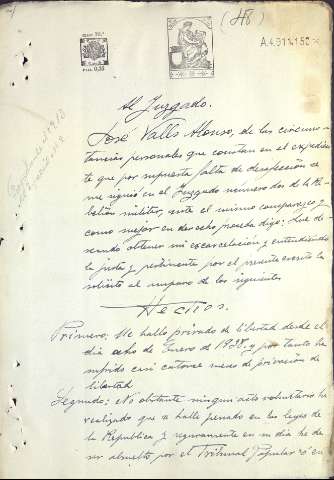 (48)
A.4.911,152
Al Juzgado.
José Valls Alonso, de las circuns-
tancias personales que constan en el expedien-
te que por supuesta falta de desafección se
me siguió en el Juzgado número dos de la Re-
belión militar, ante el mismo comparezco y
como mejor en derecho proceda digo: Que de-
seando obtener mi excarcelación y entendiendo
la justa y pertinente por el presente escrito la
solicito al amparo de los siguientes
Hechos.
Primero: Me hallo privado de libertad desde el
dia ocho de Enero de 1938, y por tanto he
sufrido casi catorce meses de privación de
libertad
Segundo: No obstante ningun acto voluntario he
realizado que se halle penado en las leyes de
la Republica y seguramente en su dia he de
ser absuelto por el Tribunal Popular o en